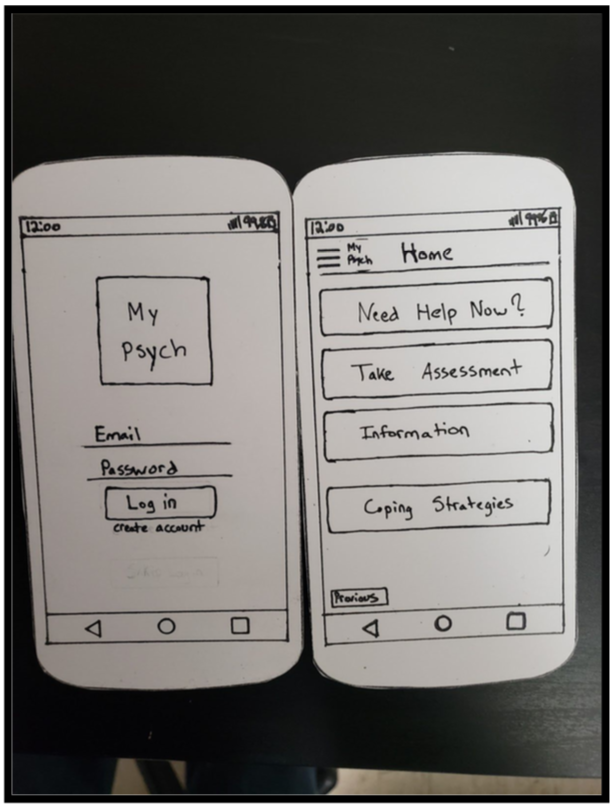 12:00
My
Psych
Email
Password
Log in
create account
12:00
My
Psych
Home
Need Help Now?
Take Assessment
Information
Coping Strategies
Previous